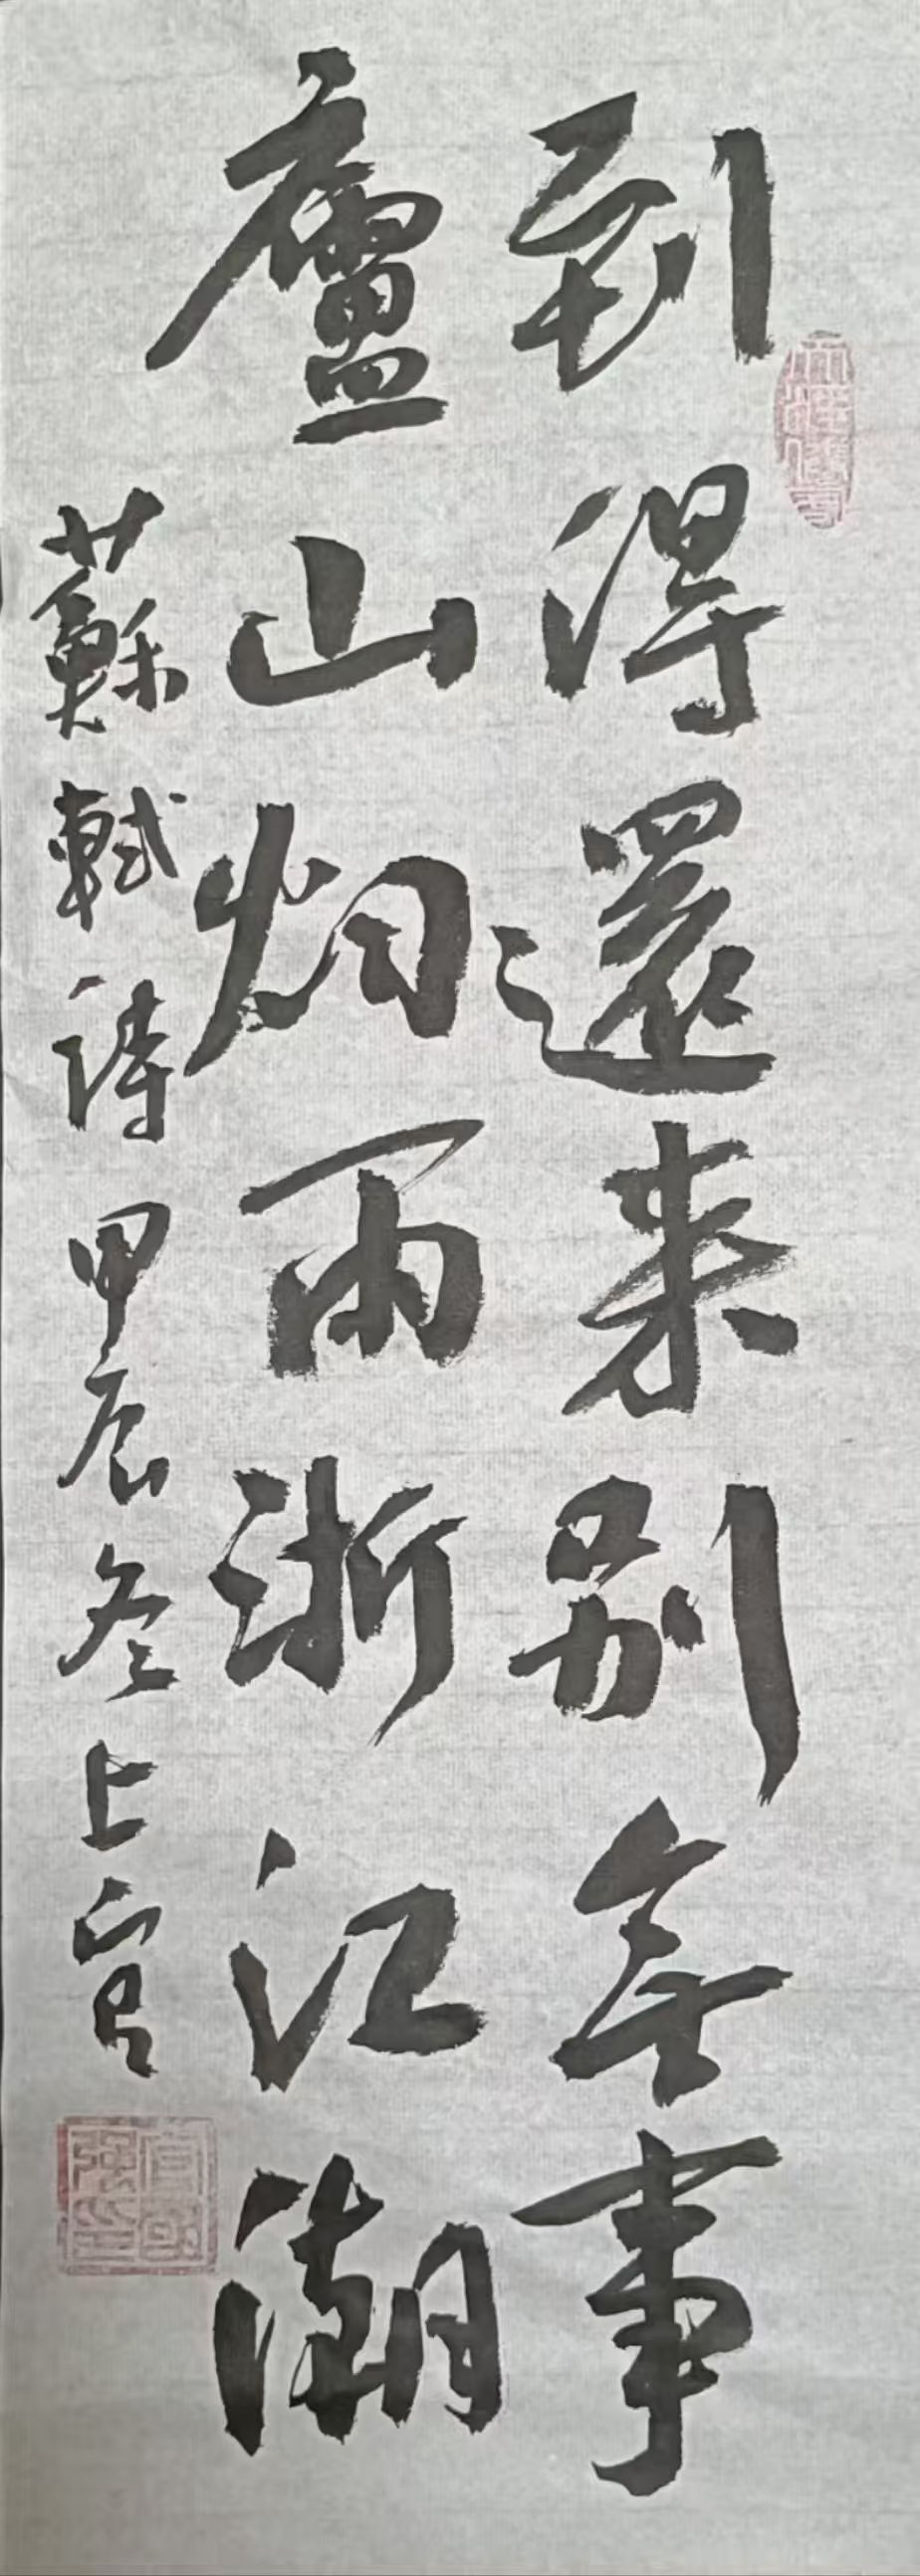 到得還来别無事
廬山烟雨浙江潮
蘇軾詩甲辰冬上官